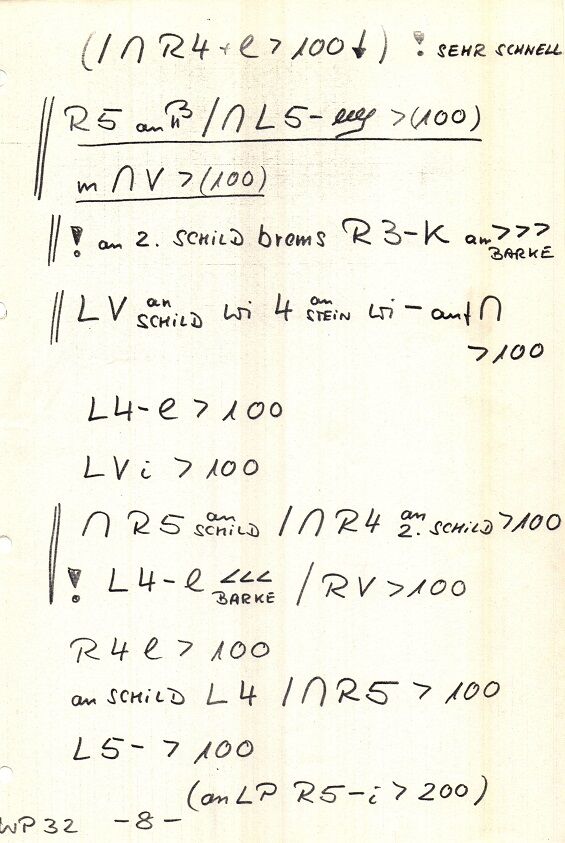 (/∩ R4+e > 100↓) ! SEHR SCHNELL
R5 an /∩ L5- > (100)
m ∩ V > (100)
! an 2. SCHILD brems R3-K am >>> BARKE
LV an SCHILD wi 4 an STEIN wi - auf ∩
> 100
L4-e > 100
LVi > 100
∩ R5 an SCHILD /∩ R4 an 2. SCHILD > 100
! L4-e <<< BARKE / RV > 100
R4e > 100
an SCHILD L4 /∩ R5 > 100
L5- > 100
(an LP R5-i > 200)
WP32 -8-